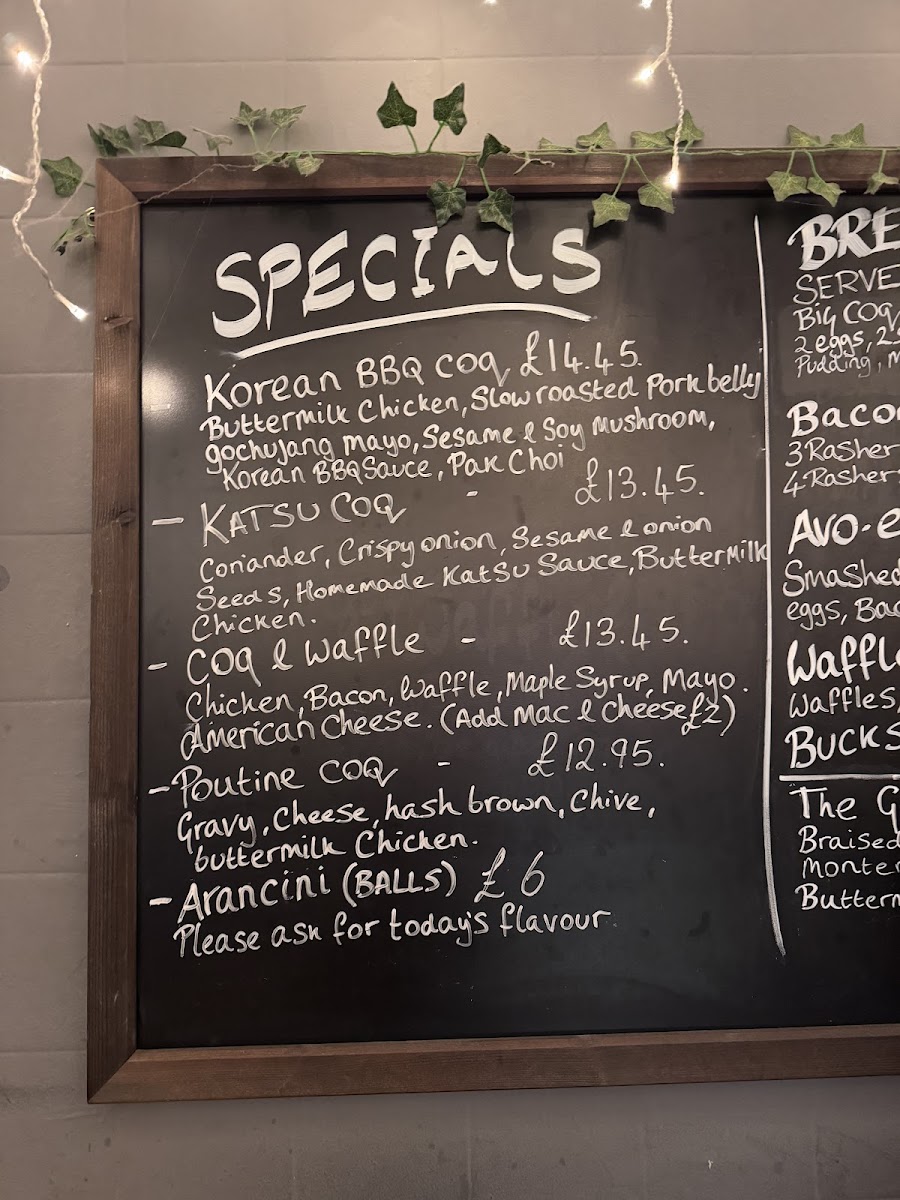 SPECIALS
Korean BBQ COQ £14.45.
Buttermilk Chicken, Slow roasted Pork belly
gochujang mayo, Sesame & Soy Mushroom,
Korean BBQ Sauce, Pak Choi
- KATSU COQ - £13.45.
Coriander, Crispy onion, Sesame & onion
Seeds, Homemade Katsu Sauce, Buttermilk
Chicken.
- COQ & Waffle - £13.45.
Chicken, Bacon, Waffle, Maple Syrup, Mayo.
American Cheese. (Add Mac & Cheese £2)
- Poutine COQ - £12.95.
Gravy, Cheese, hash brown, Chive,
buttermilk Chicken.
- Arancini (BALLS) £6
Please ask for today's flavour.
BRE
SERVE
Big COQ
2 eggs, 2S
Pudding, M
Baco
3 Rasher
4 Rashers
Avo-e
Smashed
eggs, Bac
Waffle
Waffles,
BUCKS
The G
Braised
Monter
Butterm